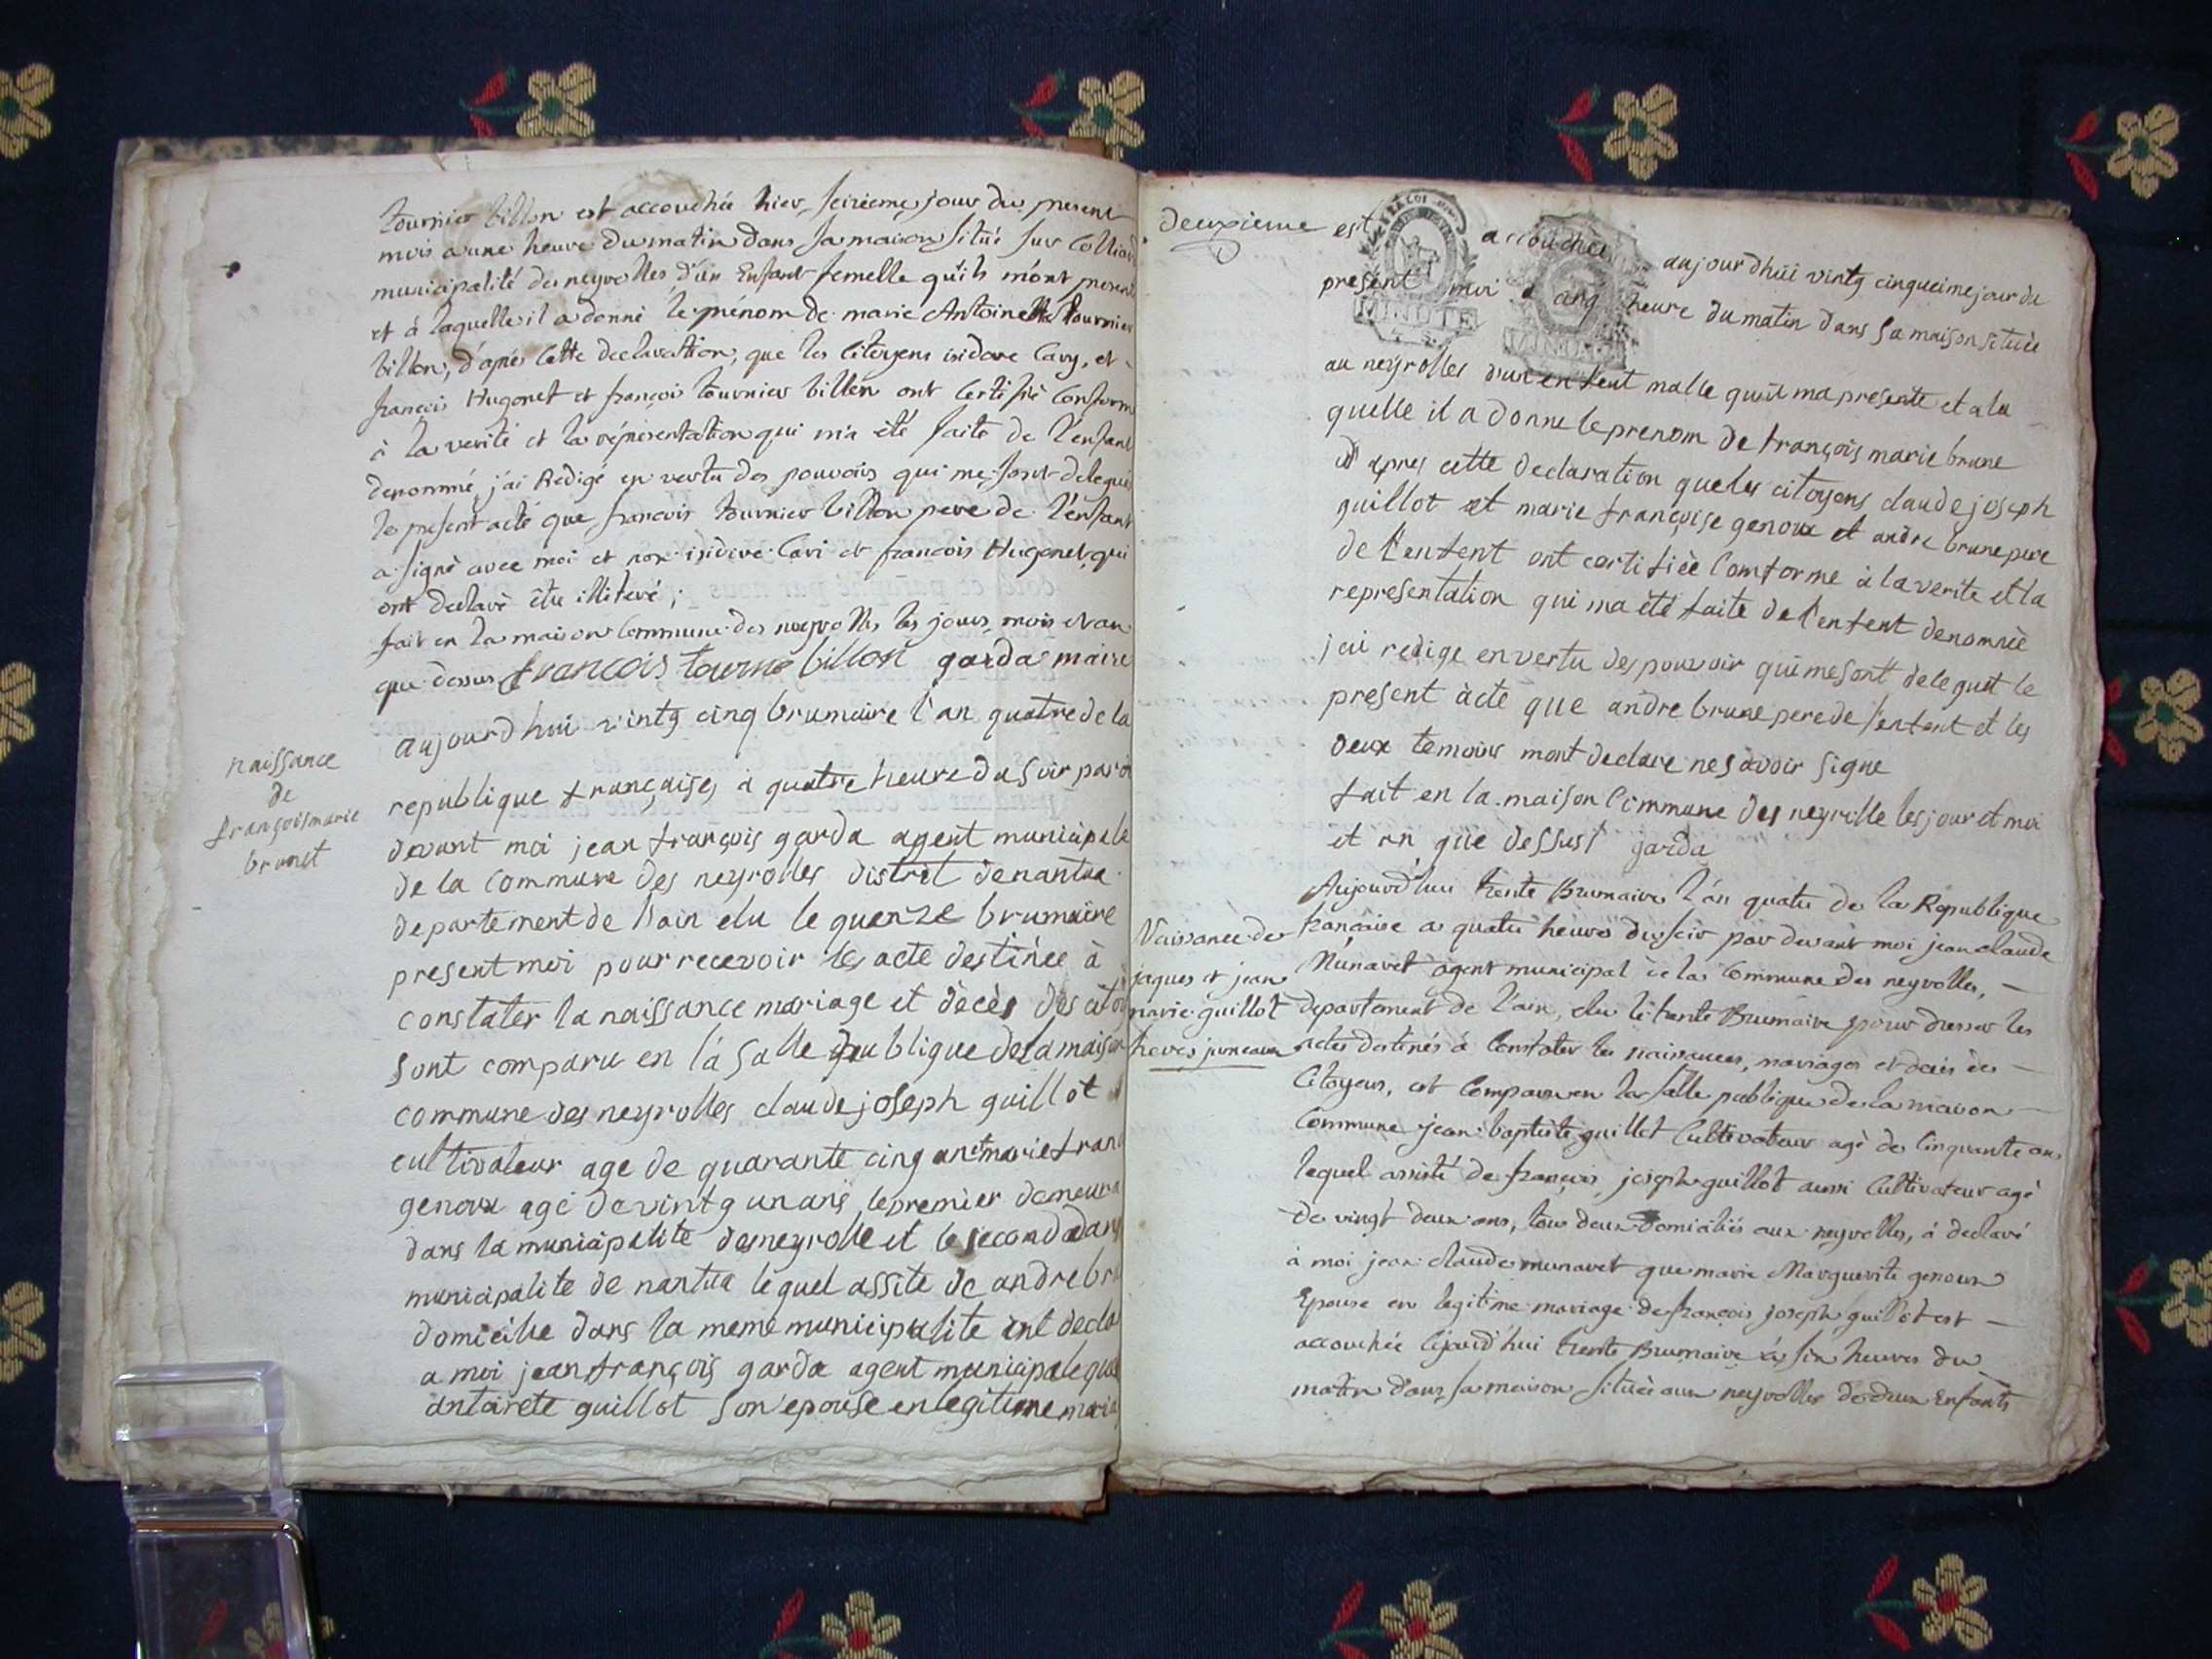 tournier billon est accouchée hier, seizieme, jour du present
mois a une heure du matin dans sa maison situé sur Colliard
municipalité des neyrolles, d'un Enfant femelle qu'ils m'ont presenté
et à laquelle il a donné le prénom de marie Antoinette tournier
billon, d'après cette declaration, que les Citoyens isidore Cavy, et
françois Hugonet et françois tournier billon ont Certifié Conforme
à la verité et la représentation qui m'a été faite de l'enfant
denommé, j'ai Rédigé en vertu des pouvoirs qui me sont delegués
le présent acte que francois tournier billon pere de l'enfant
a signé avec moi et non isidore Cavi et francois Hugonet qui
ont declaré être illiteré ;
fait en la maison Commune des neyrolles les jours, mois et an
que dessus francois tournie billon garda maire
naissance
de
françoismarie
brunet
aujourdhui vintg cinq brumaire l'an quatre de la
republique françaises a quatre heure du soir par
devant moi jean françois garda agent municipale
de la commune des neyrolles distrit de nantua
departement de l'ain elu le quenze brumaire
present moi pour recevoir les acte destinée à
constater la naissance mariage et décès des citoy
sont comparu en la salle publique de la maison
commune des neyrolles claude joseph guillot et
cultivateur age de quarante cinq anet marie fran
genoux agé de vintg un ans le premier demeura
dans la municipalite desneyrolle et le seconda dans
municipalite de nantua lequel assite de andre bru
domicilie dans la meme municipalite ont decla
a moi jean françois garda agent municipale que
antoirete guillot son epouse en legitime maria
deuxieme est accouchee aujourdhui vintg cinqueime jour du
present moi a cinq heure du matin dans sa maison situèe
au neyrolles d'un entent malle quil ma presente et a la
quelle il a donne le prenom de françois marie brune
d apres cette declaration que les citoyens claude joseph
guillot et marie françoise genoux et andre brune pere
de l'entent ont certifièe comforme à la verite et la
representation qui ma été faite de l'entent denomnèe
jai redige en vertu des pouvoir qui me sont deleguet le
present àcte que andre brune pere de l'entent et les
deux temoins mont declare ne savoir signe
fait en la maison commune des neyrolle les jour et moi
et an que dessust garda
Naissance de
jaques et jean
marie guillot
freres jumeaux
Aujourd'hui trente Brumaire l'an quatre de la Republique
française a quatre heures du soir par devant moi jean claude
Munavet agent municipal de la Commune des neyrolles,
departement de l'ain, elu le trente Brumaire pour dresser les
actes destinés à Constater les naissances, mariages et décès des
Citoyens, est Comparu en la salle publique de la maison
Commune jean baptiste guillot Cultivateur agé de Cinquante ans
lequel assisté de françois joseph guillot aussi Cultivateur agé
de vingt deux ans, tous deux domiciliés aux neyrolles, à declaré
à moi jean claude munavet que marie Marguerite genoux
Epouse en legitime mariage de françois joseph guillot est
accouchée cejourd'hui trente Brumaire à six heures du
matin dans sa maison située aux neyrolles de deux Enfants
MINUTE